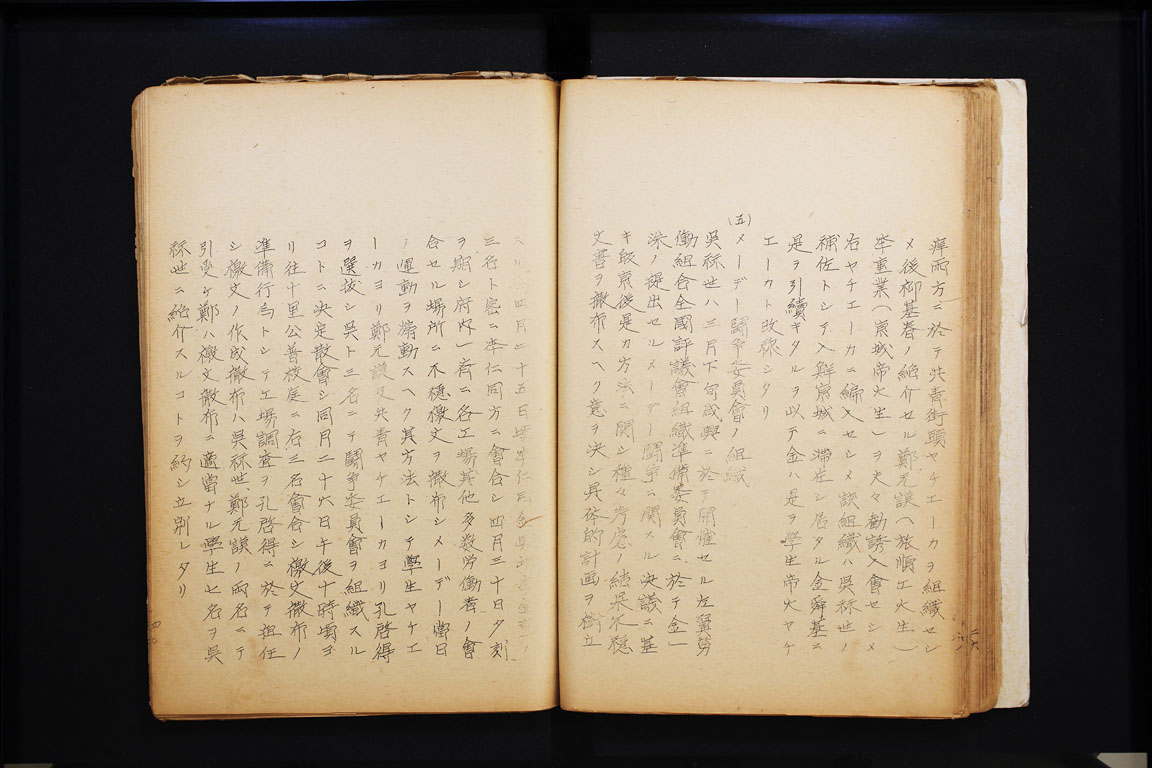 席両方ニ於テ共青街頭ヤチエーカヲ組織セシ
メ後柳基春ノ紹介セル鄭元謨(旅順工大生)
李重業(京城帝大生)ヲ夫々勧誘入會セシメ
右ヤチエーカニ編入セシメ該組織ハ呉祢世ノ
補佐トシテ入鮮京城ニ滞在シ居タル金舜基ニ
是ヲ引續キタルヲ以テ金ハ是ヲ學生帝大ヤチ
エーカト改称シタリ
(五)メーデー闘争委員會ノ組織
呉祢世ハ三月下旬咸興ニ於テ開催セル左翼労
働組合全國評議會組織準備委員會ニ於テ金一
洙ノ提出セルメーデー闘争ニ関スル決議ニ基
キ帰京後是カ方法ニ関シ種々考慮ノ結果不穏
文書ヲ撒布スヘク意ヲ決シ具体的計画ヲ樹立
四月二十五日
三行ト密ニ李仁同方ニ會合シ四月三十日夕刻
ヲ期シ府内一斉ニ各工場其他多数労働者ノ會
合セル場所ニ不穏檄文ヲ撒布シメーデー當日
ノ運動ヲ煽動スヘク其方法トシテ學生ヤチエ
ーカヨリ鄭元謨及共青ヤチエーカヨリ孔啓得
ヲ選抜シ呉ト三名ニテ闘争委員會ヲ組織スル
コトニ決定散會シ同月二十六日午後十時頃ヨ
リ往十里公普校庭ニ右三名會合シ檄文撒布ノ
準備行為トシテ工場調査ヲ孔啓得ニ於テ担任
シ檄文ノ作成撒布ハ呉祢世鄭元謨ノ両名ニテ
引受ケ鄭ハ檄文撒布ニ適當ナル學生七名ヲ呉
祢世ニ紹介スルコトヲ約シ立別レタリ